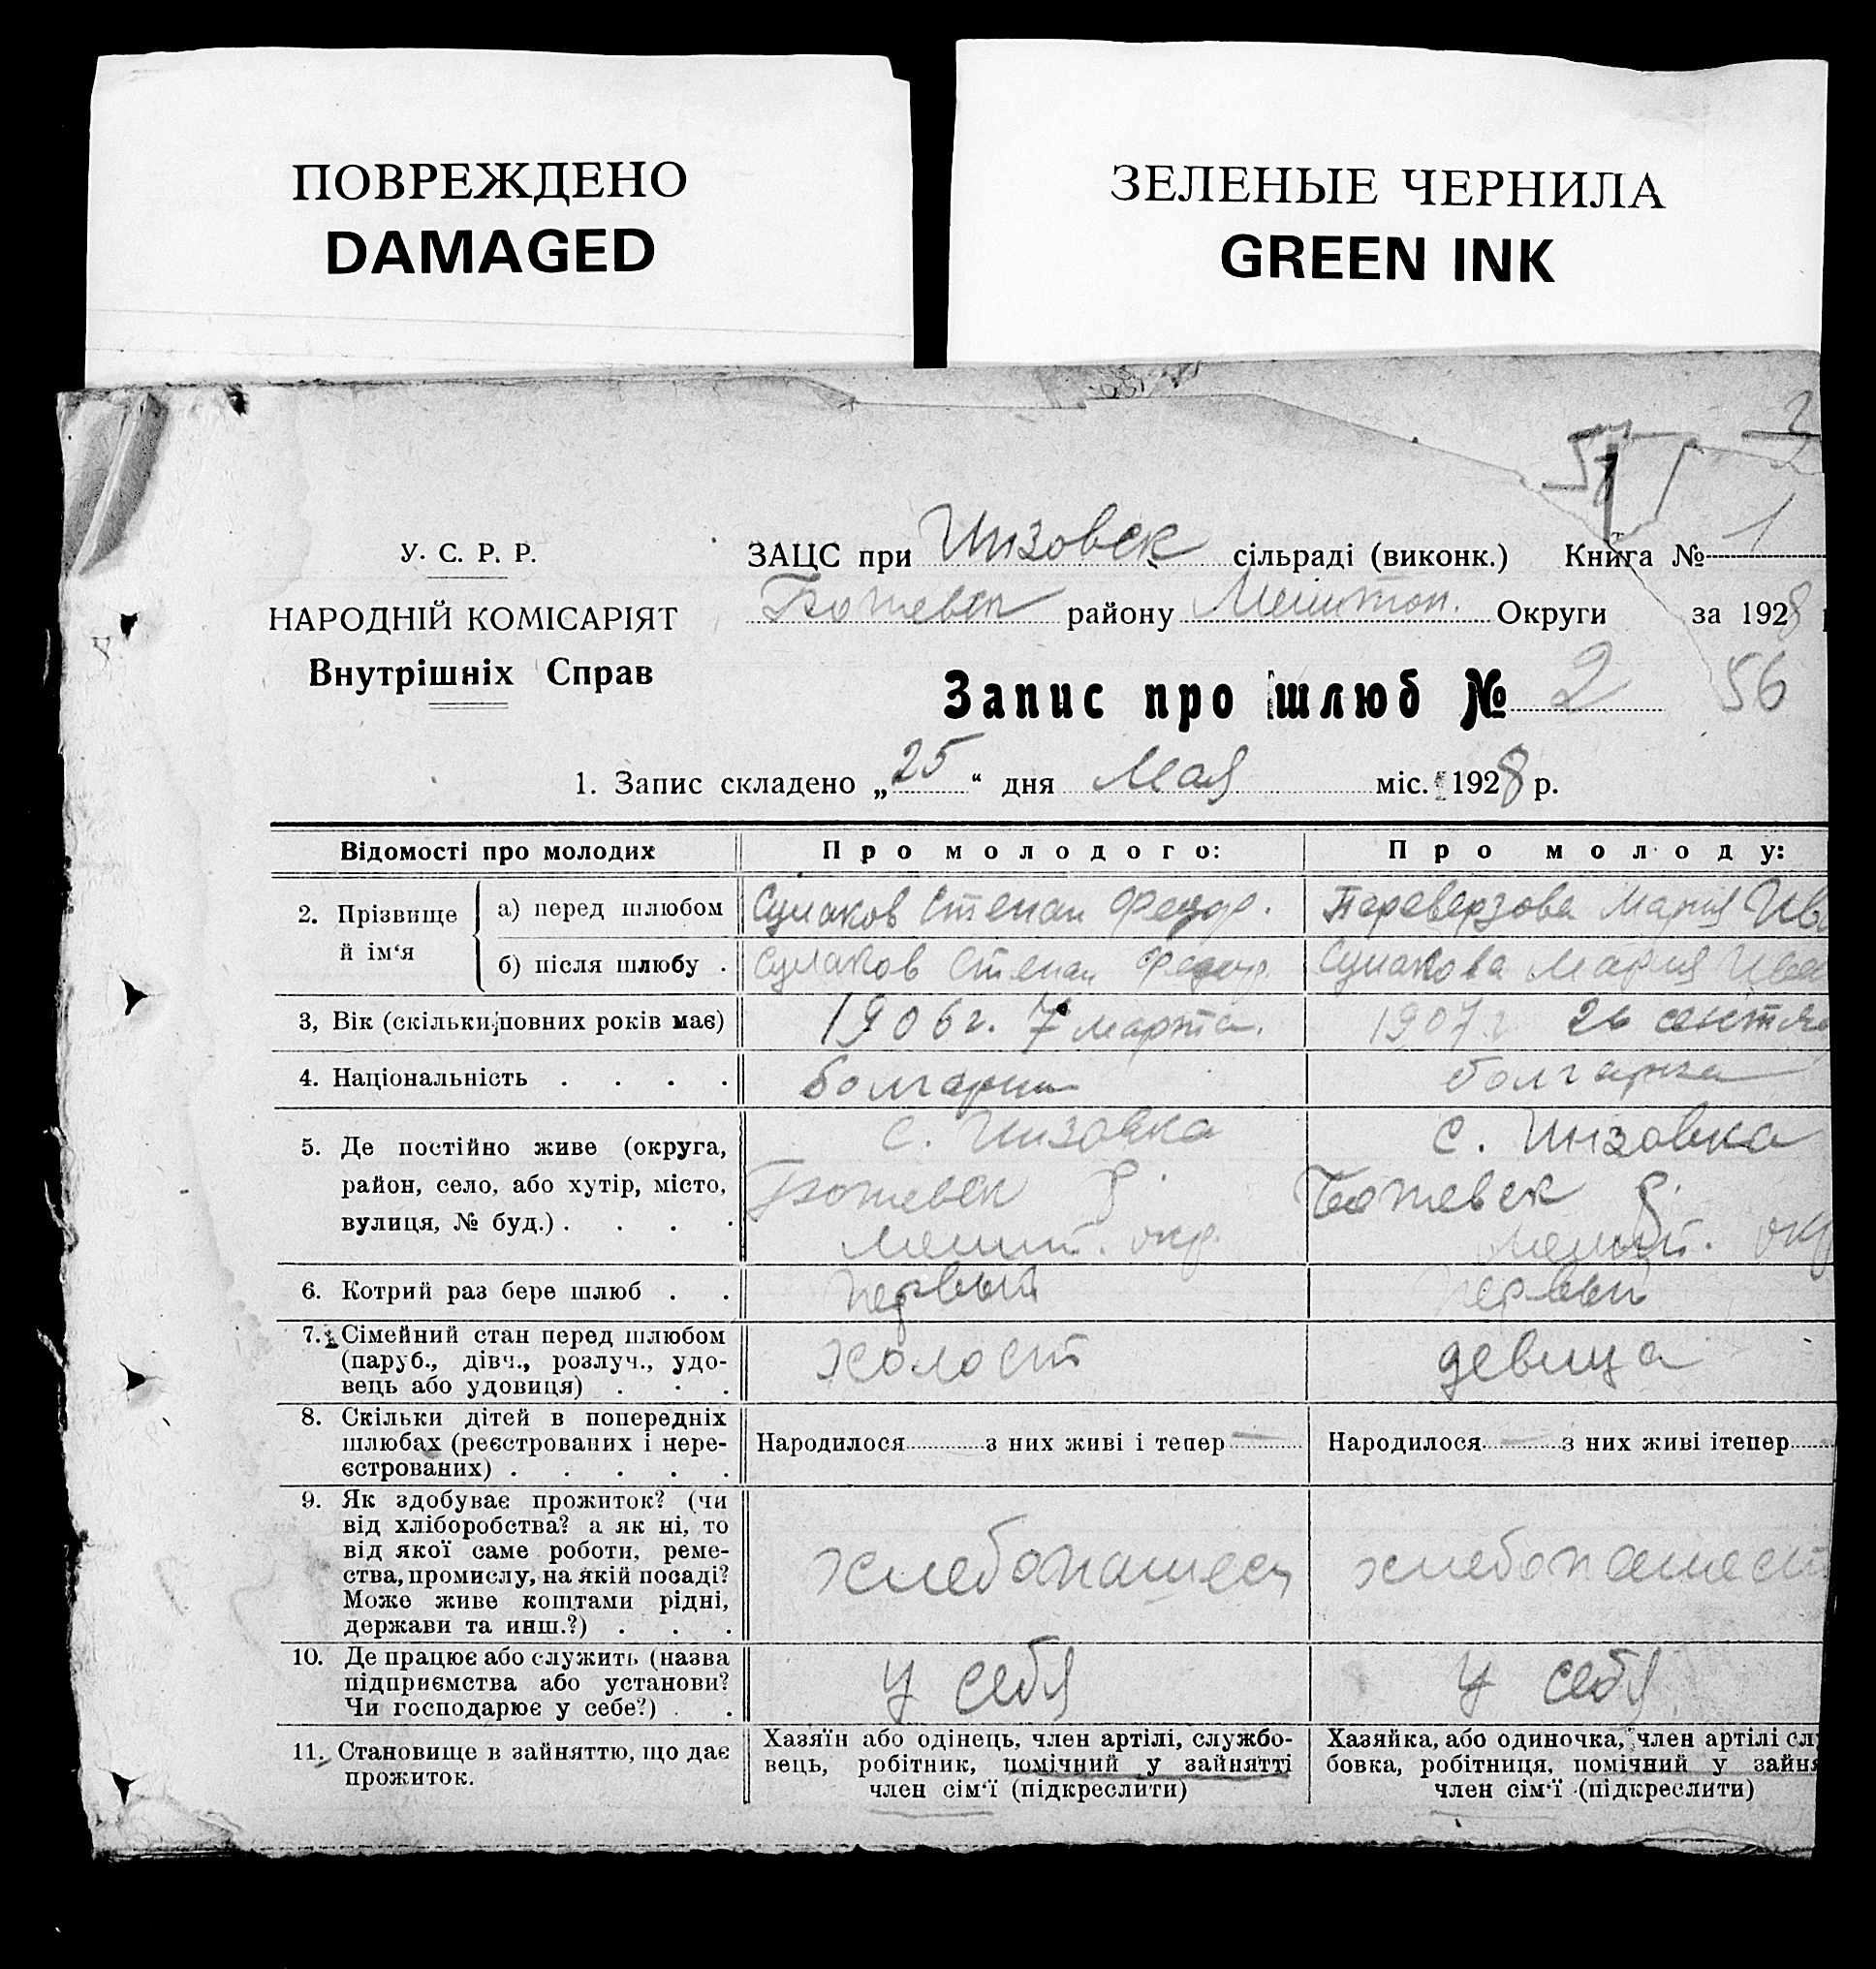 ПОВРЕЖДЕНО
DAMAGED
ЗЕЛЕНЫЕ ЧЕРНИЛА
GREEN INK
У. С. Р. Р.
НАРОДНІЙ КОМІСАРІЯТ
Внутрішніх Справ
ЗАЦС при Инзовск сільраді (виконк.) Книга № 1
Ботевск району Мелитоп. Округи за 1928
Запис про шлюб № 2 56
1. Запис складено „25“ дня Мая міс. 1928 р.
Відомості про молодих Про молодого: Про молоду:
2. Прізвище й ім‘я
а) перед шлюбом Сулаков Степан Федор. Переверзова Мария Ива
б) після шлюбу . Сулаков Степан Федор. Сулакова Мария Ива
3, Вік (скільки повних років має) 1906 г. 7 марта. 1907 г. 26 сентя
4. Національність . . . . болгарин болгарка
5. Де постійно живе (округа, район, село, або хутір, місто, вулиця, № буд.) . . . .
с. Инзовка
Ботевск р.
Мелит. окр.
с. Инзовка
Ботевск р.
Мелит. окр
6. Котрий раз бере шлюб . . первый первый
7. Сімейний стан перед шлюбом
(паруб., дівч., розлуч., удо-
вець або удовиця) . . . холост девица
8. Скільки дітей в попередніх
шлюбах (реєстрованих і нере-
єстрованих) . . . . .
Народилося з них живі і тепер —
Народилося — з них живі ітепер
9. Як здобуває прожиток? (чи
від хліборобства? а як ні, то
від якої саме роботи, реме-
ства, промислу, на якій посаді?
Може живе коштами рідні,
держави та инш.?) . . .
хлебопашест хлебопашест
10. Де працює або служить (назва
підприємства або установи?
Чи господарює у себе?) . .
у себя у себя
11. Становище в зайняттю, що дає
прожиток.
Хазяїн або одінець, член артілі, службо-
вець, робітник, помічний у зайнятті
член сім‘ї (підкреслити)
Хазяйка, або одиночка, член артілі сл
бовка, робітниця, помічний у зайня
член сім‘ї (підкреслити)